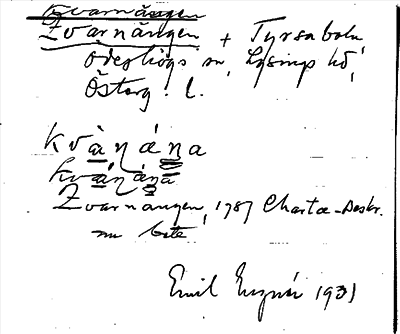 Kvarnängen
Kvarnängen + Tyrsabola
Ödeshögs sn, Lysings hd,
Österg. l.
kvànána
kvànána
Kvarnängen, 1787 Charta-Beskr.
nu bete
Emil 1931